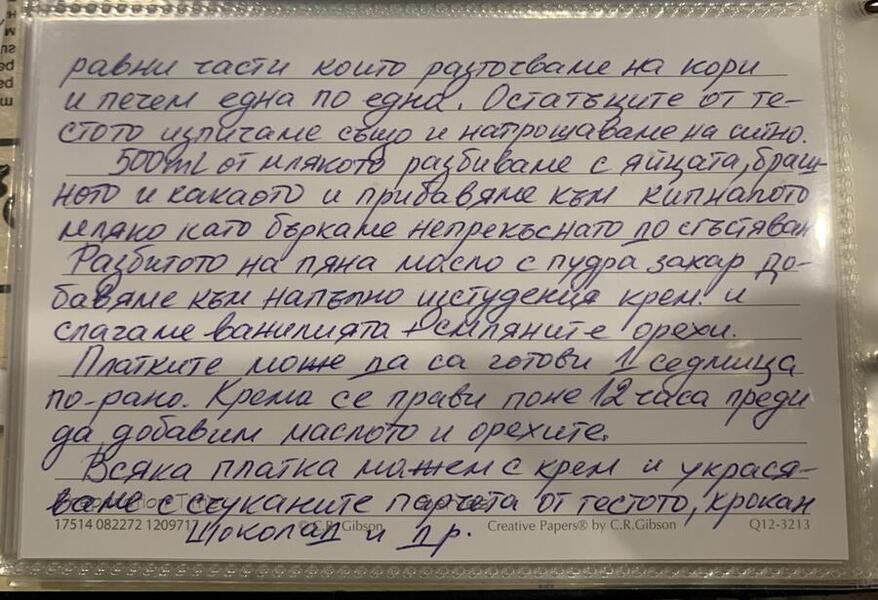 равни части които разточваме на кори
и печем една по една. Остатъците от те-
стото изпичаме също и натрошаваме на ситно.
500mL от млякото разбиваме с яйцата, браш-
ното и какаото и прибавяме към кипналото
мляко като бъркаме непрекъснато до сгъстяван
Разбитото на пяна масло с пудра захар до-
бавяме към напълно изстудения крем и
слагаме ванилията + смляните орехи.
Платките може да са готови 1 седмица
по-рано. Крема се прави поне 12 часа преди
да добавим маслото и орехите.
Всяка платка мажем с крем и украся-
ваме с счуканите парчета от тестото, крокан
шоколад и др.
17514 082272 120971
C.R.Gibson
Creative Papers® by C.R.Gibson
Q12-3213